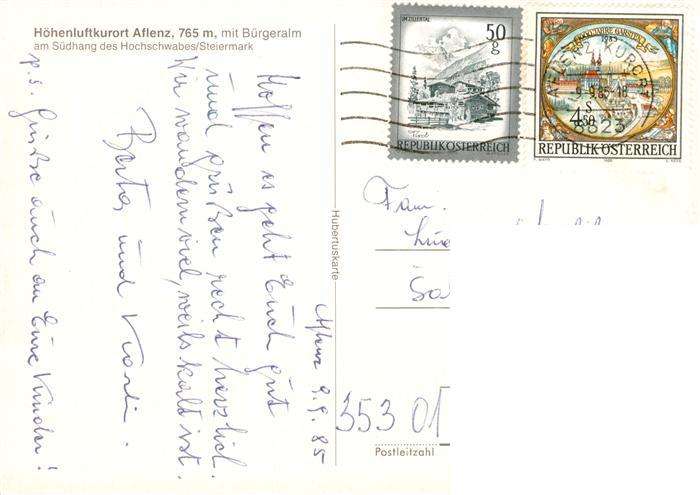 Höhenluftkurort Aflenz, 765 m, mit Bürgeralm
am Südhang des Hochschwabes/Steiermark
Aflenz 9.9.85
Hoffen es geht Euch gut
und grüßen recht herzlich.
Wir wandern viel, weils kalt ist.
Berta und Karli.
p.s. Grüße auch an Eure Kinder!
Hubertuskarte
IM ZILLERTAL
50 g
Tirol
REPUBLIK ÖSTERREICH
1000 JAHRE GARSTEN
S 4.50
REPUBLIK ÖSTERREICH
AFLENZ, KURORT
9.-9.85-18
8623
Fam.
353 01
Postleitzahl